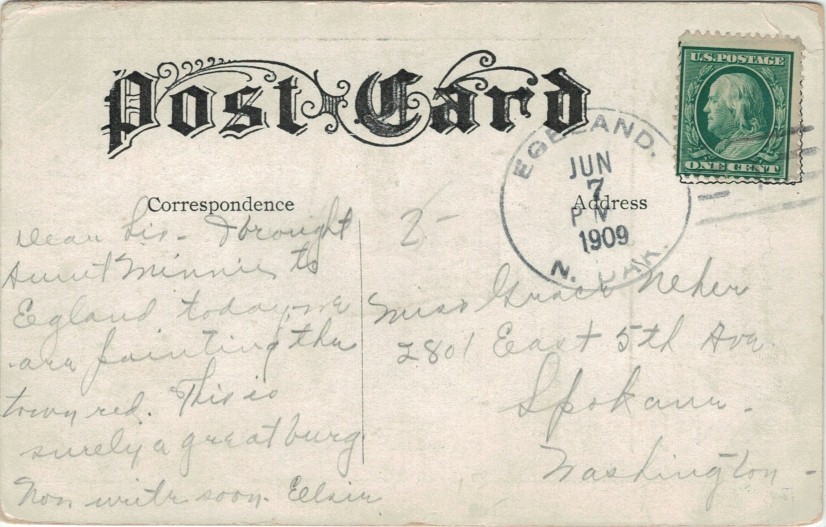 Post Card
U.S. POSTAGE
ONE CENT
EGELAND.
JUN
7
PM
1909
N. DAK.
Correspondence
Address
Dear Sis - I brought
Aunt Minnie to
Egland today, we
are painting the
town red. This is
surely a great burg
Now write soon. Elsie
2-
Miss Grace Neher
2801 East 5th Ave
Spokane.
Washington -